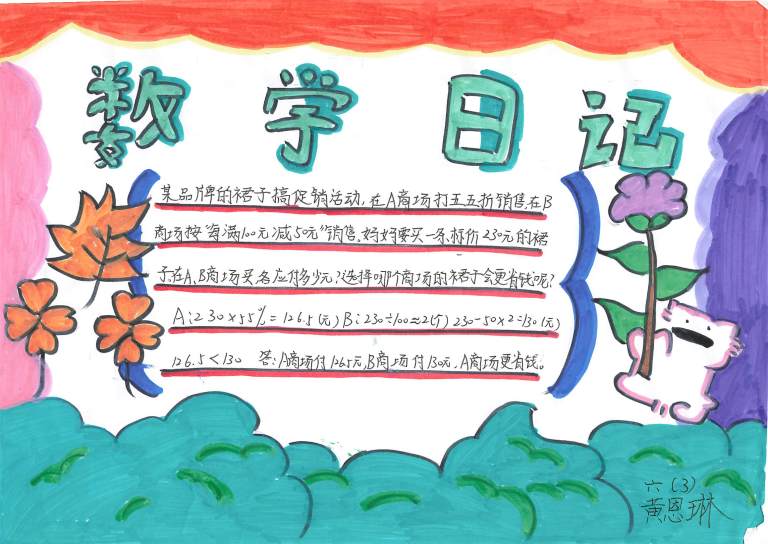 数学日记
某品牌的裙子搞促销活动,在A商场打五五折销售,在B
商场按"每满100元减50元"销售,妈妈要买一条标价230元的裙
子,在A,B商场买各应付多少元?选择哪个商场的裙子会更省钱呢?
A:230×55%=126.5(元) B:230÷100≈2(个) 230-50×2=130(元)
126.5<130 答:A商场付126.5元,B商场付130元,A商场更省钱。
六(3)
黄恩琳